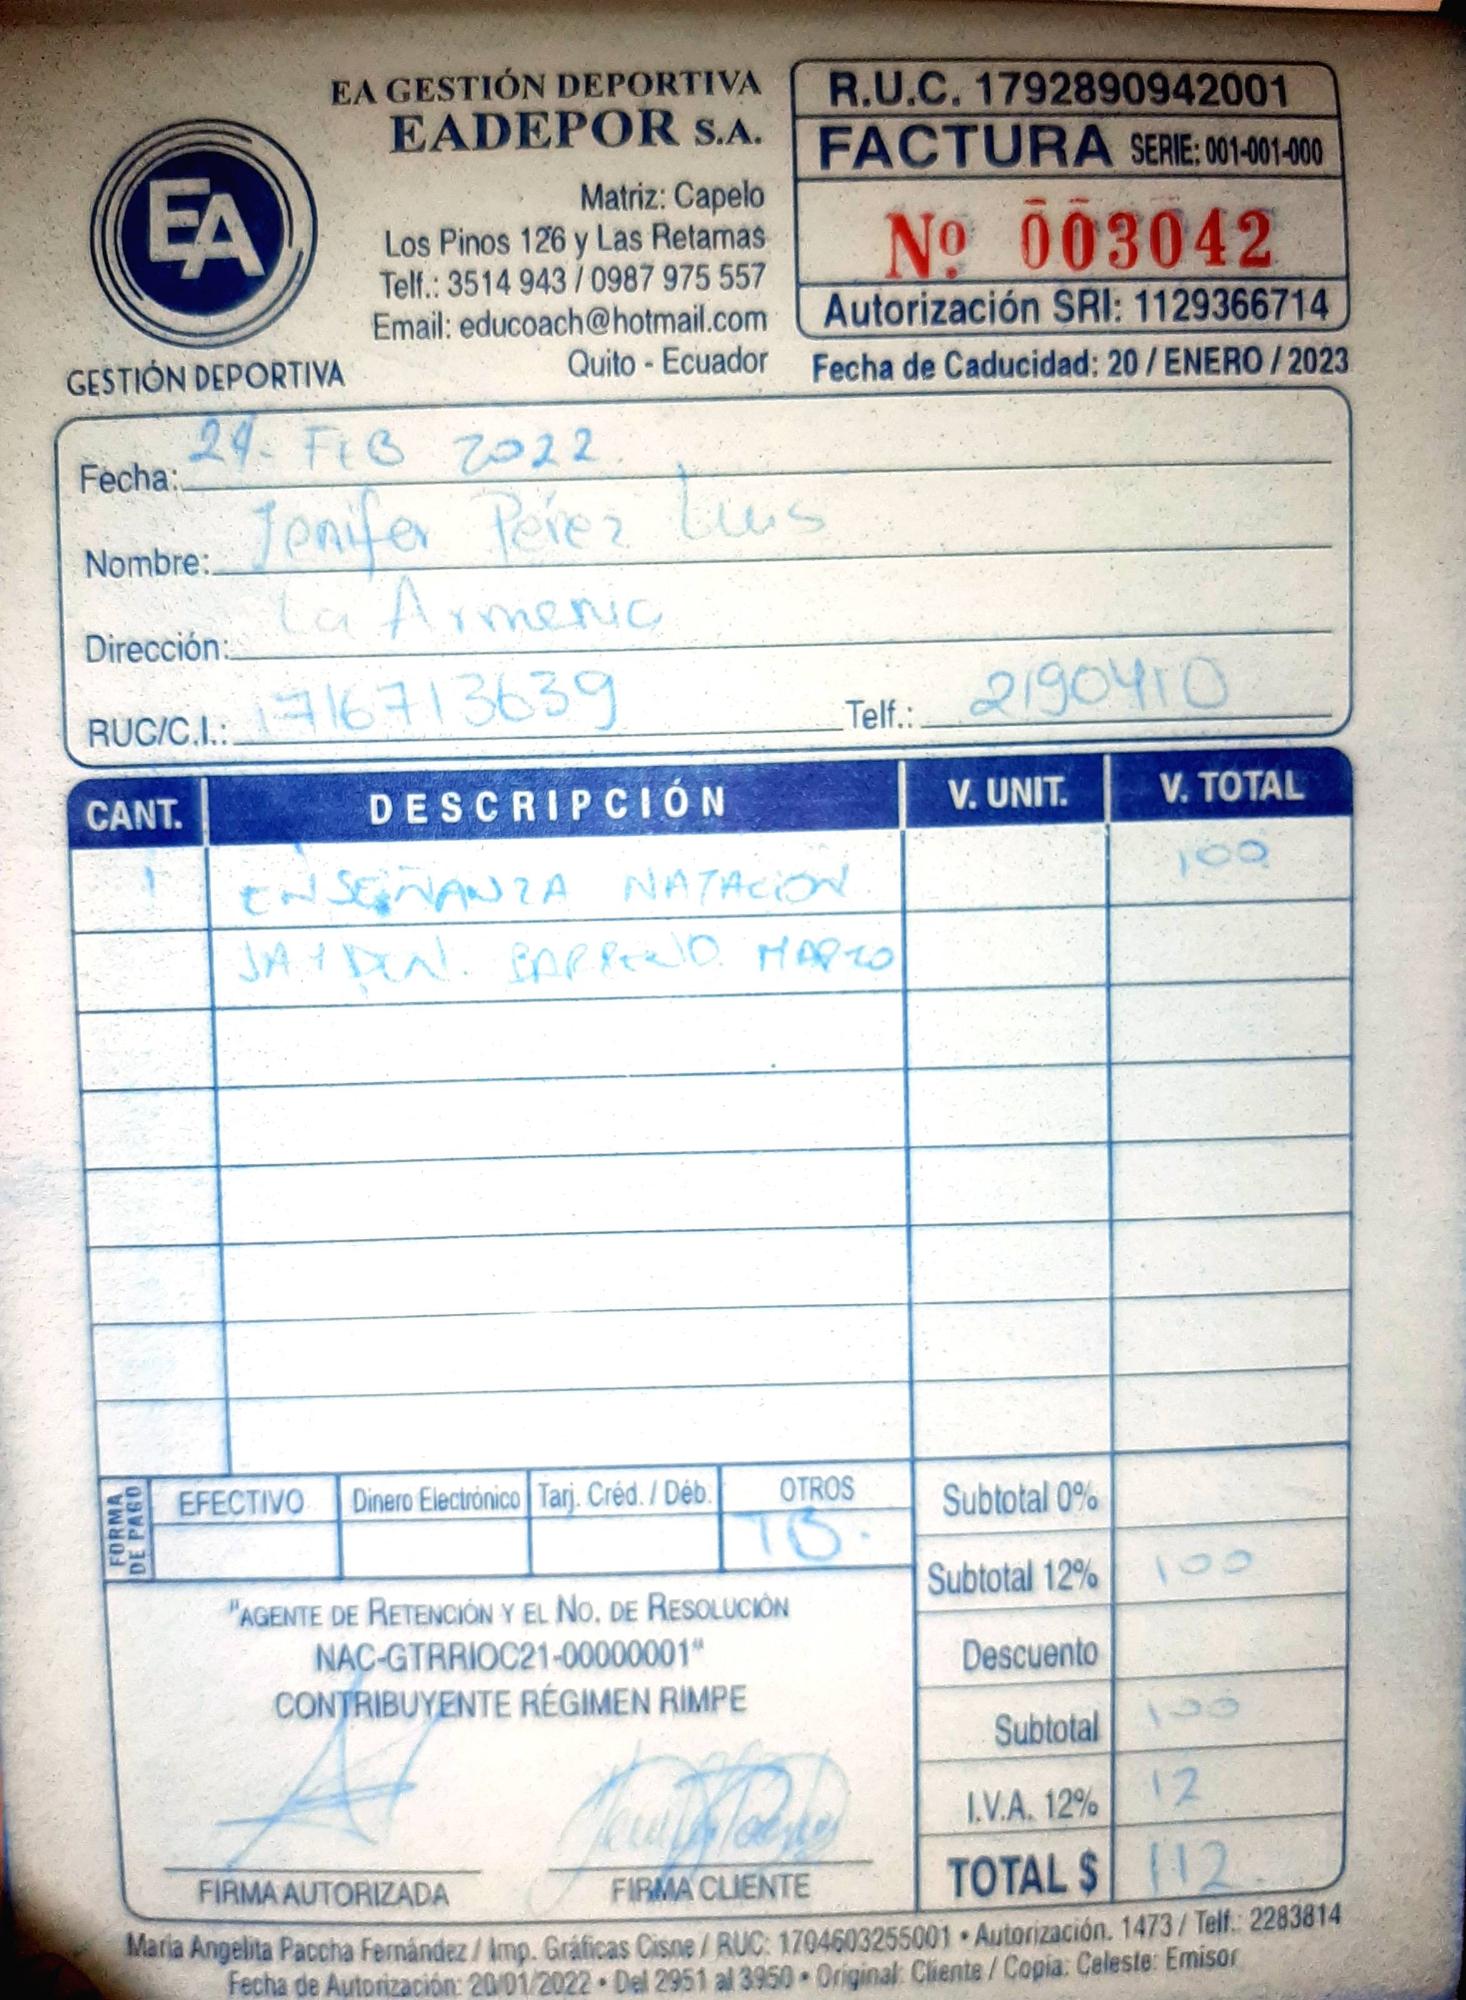 EA GESTIÓN DEPORTIVA
EADEPOR S.A.
Matriz: Capelo
Los Pinos 126 y Las Retamas
Telf.: 3514 943 / 0987 975 557
Email: educoach@hotmail.com
Quito - Ecuador
EA
GESTIÓN DEPORTIVA
R.U.C. 1792890942001
FACTURA SERIE: 001-001-000
Nº 003042
Autorización SRI: 1129366714
Fecha de Caducidad: 20 / ENERO / 2023
Fecha: 24 - FEB 2022
Nombre: Jenifer Pérez Luis
Dirección: La Armenia
RUC/C.I.: 1716713639 Telf.: 2190410
CANT. DESCRIPCIÓN V. UNIT. V. TOTAL
1 ENSEÑANZA NATACION 100
JAYDEN. BARRENO MARZO
FORMA DE PAGO
EFECTIVO Dinero Electrónico Tarj. Créd. / Déb. OTROS
TB.
Subtotal 0%
Subtotal 12% 100
Descuento
Subtotal 100
I.V.A. 12% 12
TOTAL $ 112
"AGENTE DE RETENCIÓN Y EL NO. DE RESOLUCIÓN
NAC-GTRRIOC21-00000001"
CONTRIBUYENTE RÉGIMEN RIMPE
FIRMA AUTORIZADA FIRMA CLIENTE
María Angelita Paccha Fernández / Imp. Gráficas Cisne / RUC: 1704603255001 • Autorización. 1473 / Telf.: 2283814
Fecha de Autorización: 20/01/2022 • Del 2951 al 3950 • Original: Cliente / Copia: Celeste: Emisor